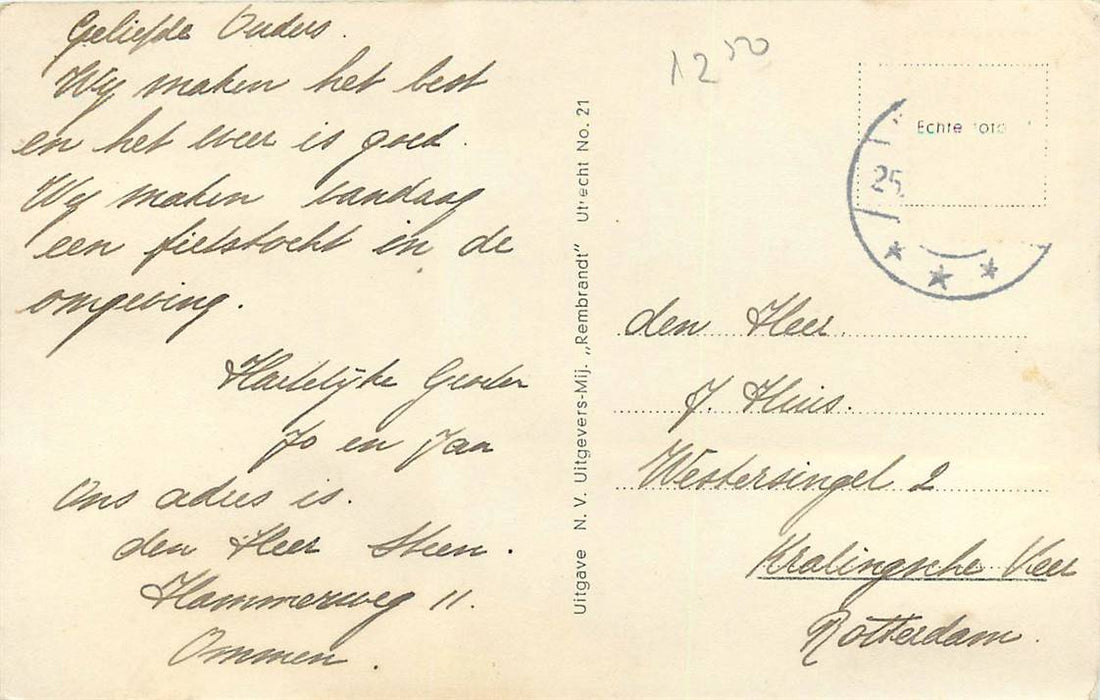 Geliefde Ouders.
Wij maken het best
en het weer is goed.
Wij maken vandaag
een fietstocht in de
omgeving.
Hartelijke Groeten
Jo en Jan
Ons adres is.
den Heer Steen.
Hammerweg 11.
Ommen.
Uitgave N. V. Uitgevers-Mij. „Rembrandt" Utrecht No. 21
12 50
Echte foto
25.
den Heer.
J. Huis.
Westersingel 2
Kralingsche Veer
Rotterdam.